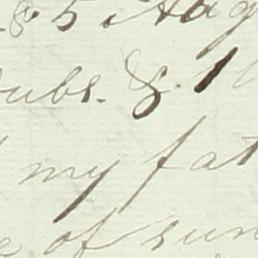 & 5 Aug
ubs. & 1
my fat
e of sun